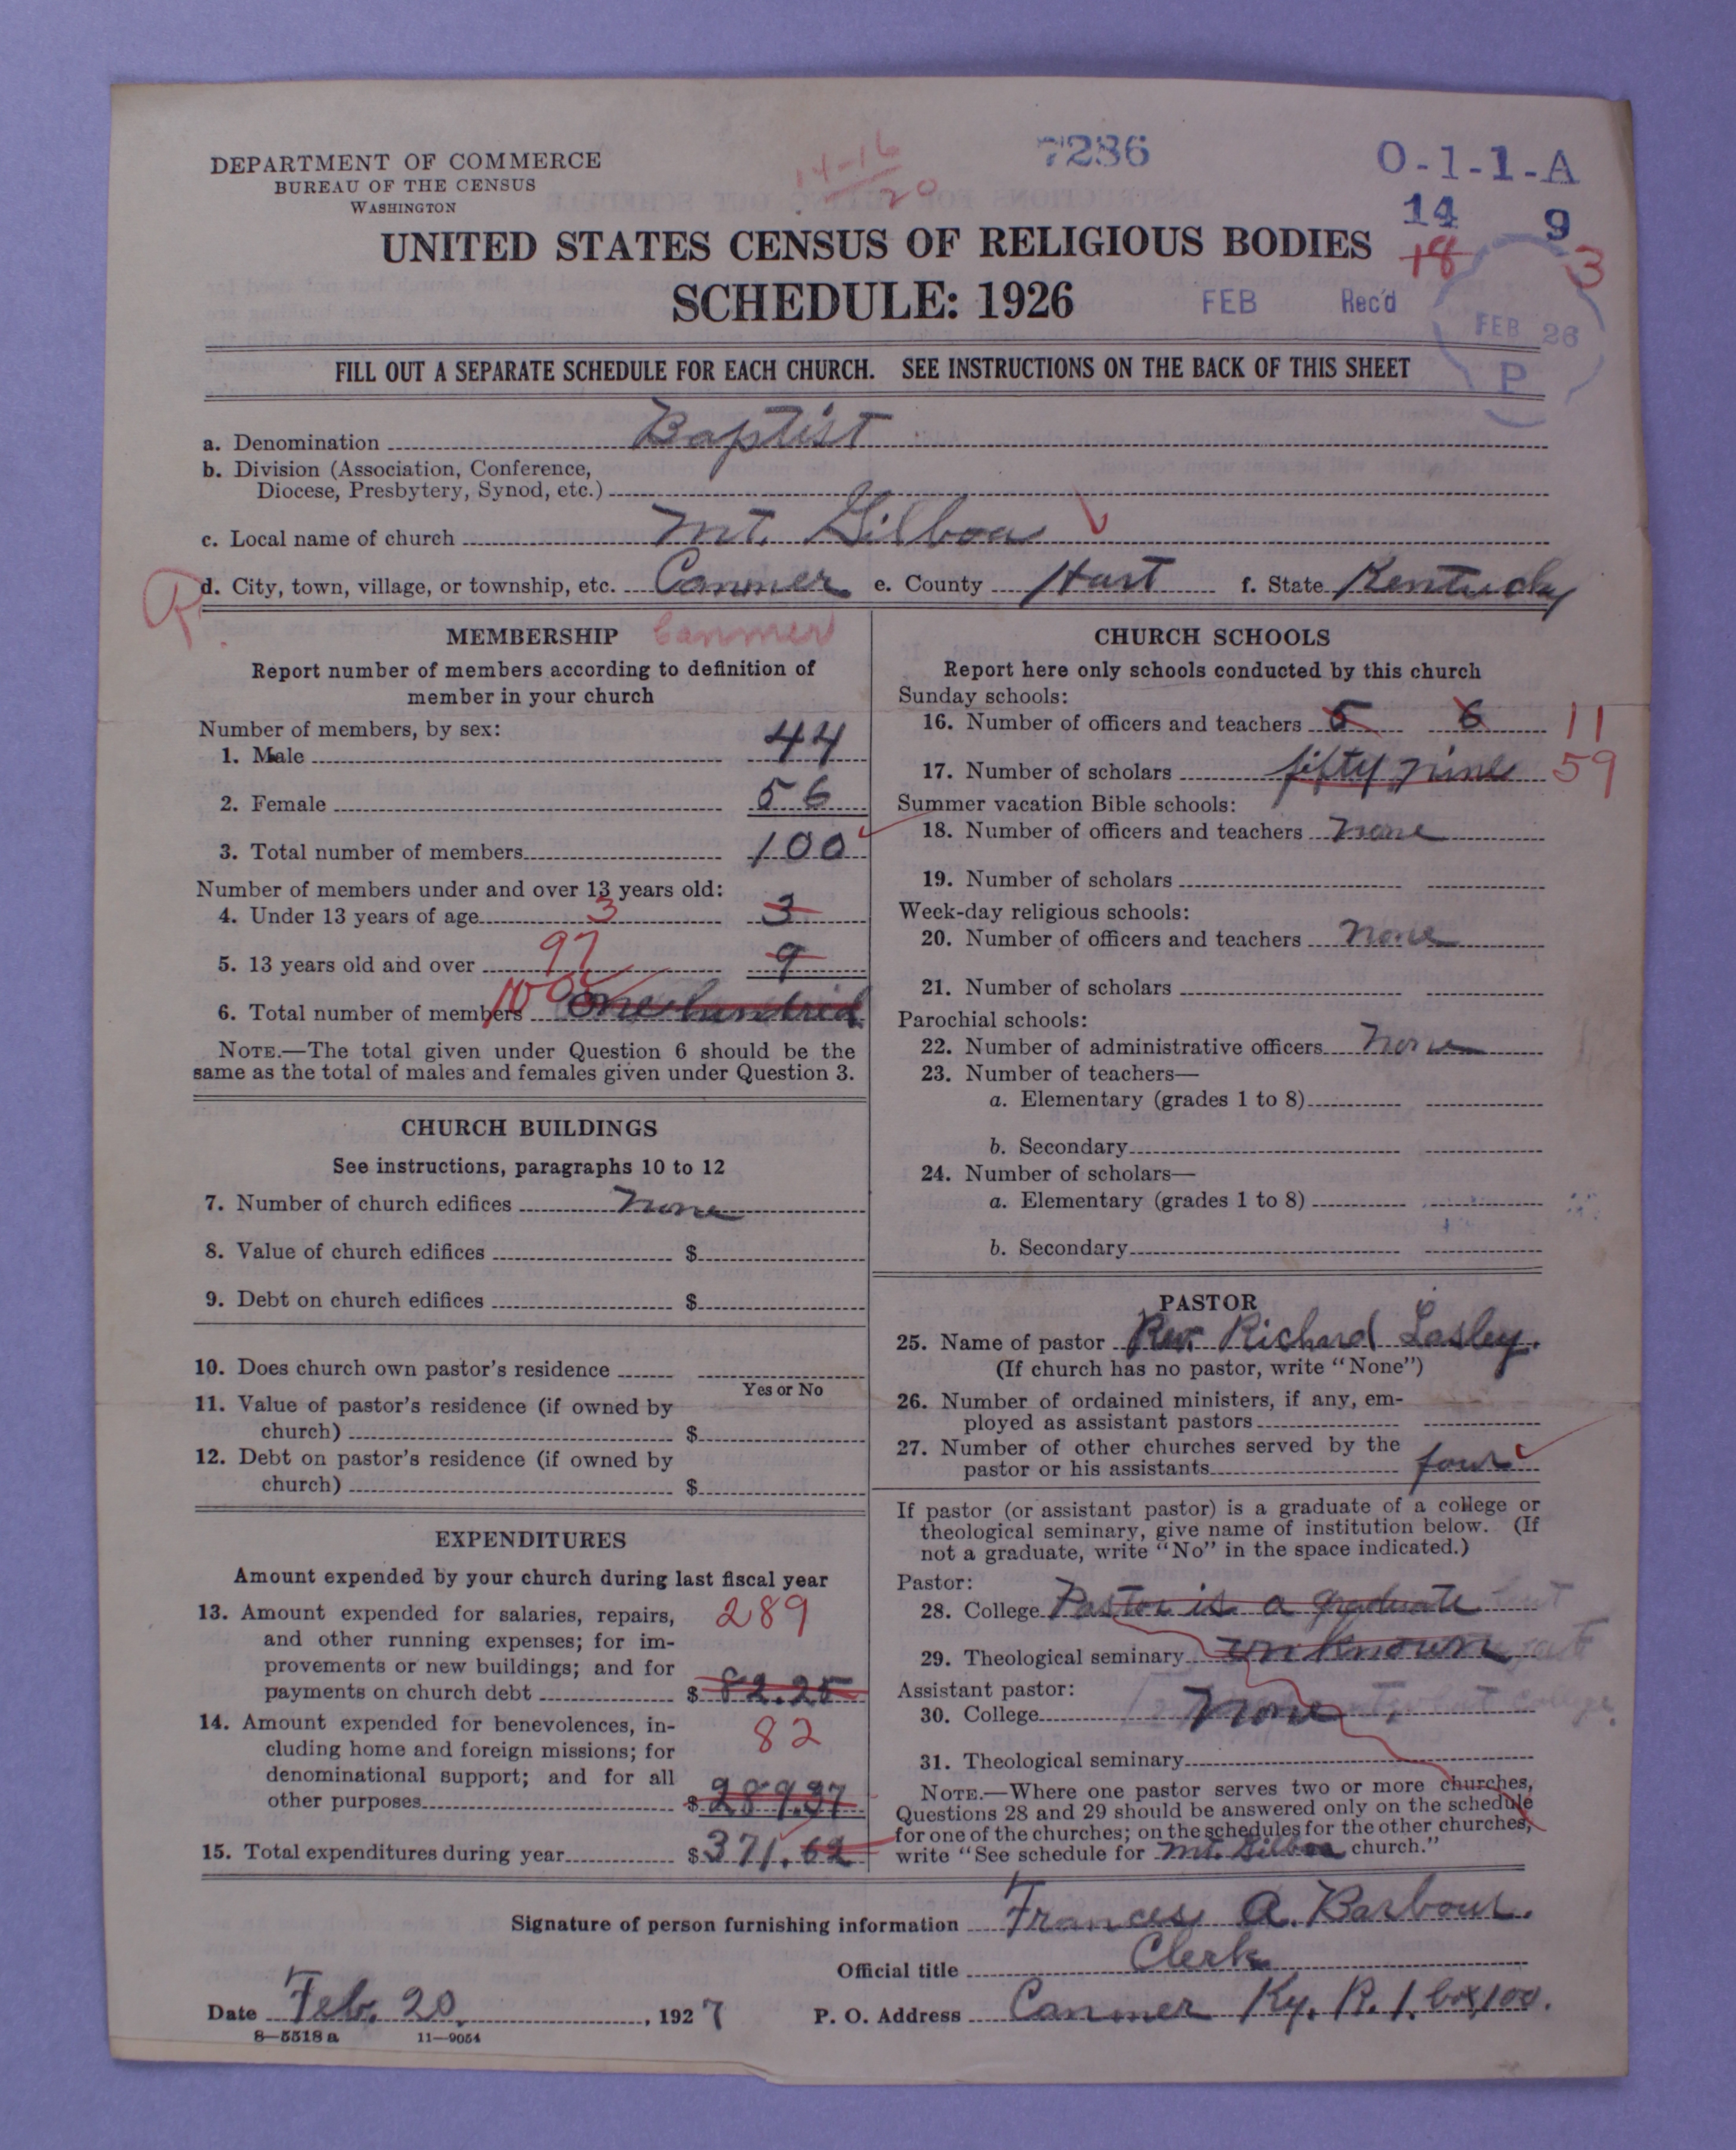 DEPARTMENT OF COMMERCE
BUREAU OF THE CENSUS
WASHINGTON
14-16
20
7286
O-1-1-A
14 9
18 3
UNITED STATES CENSUS OF RELIGIOUS BODIES
SCHEDULE: 1926
FEB Rec'd
FEB 26
P
FILL OUT A SEPARATE SCHEDULE FOR EACH CHURCH. SEE INSTRUCTIONS ON THE BACK OF THIS SHEET
a. Denomination Baptist
b. Division (Association, Conference,
Diocese, Presbytery, Synod, etc.)
c. Local name of church Mt. Gilboa
R. d. City, town, village, or township, etc. Canmer e. County Hart f. State Kentucky
MEMBERSHIP Canmer
Report number of members according to definition of
member in your church
Number of members, by sex:
1. Male 44
2. Female 56
3. Total number of members 100
Number of members under and over 13 years old:
4. Under 13 years of age 3 3
5. 13 years old and over 97 9
6. Total number of members 100 one hundred
NOTE.—The total given under Question 6 should be the
same as the total of males and females given under Question 3.
CHURCH BUILDINGS
See instructions, paragraphs 10 to 12
7. Number of church edifices none
8. Value of church edifices $
9. Debt on church edifices $
10. Does church own pastor's residence
Yes or No
11. Value of pastor's residence (if owned by
church) $
12. Debt on pastor's residence (if owned by
church) $
EXPENDITURES
Amount expended by your church during last fiscal year
13. Amount expended for salaries, repairs, 289
and other running expenses; for im-
provements or new buildings; and for
payments on church debt $ 82.25
14. Amount expended for benevolences, in- 82
cluding home and foreign missions; for
denominational support; and for all
other purposes $ 289.37
15. Total expenditures during year $ 371.62
CHURCH SCHOOLS
Report here only schools conducted by this church
Sunday schools:
16. Number of officers and teachers 5 6 11
17. Number of scholars fifty nine 59
Summer vacation Bible schools:
18. Number of officers and teachers none
19. Number of scholars
Week-day religious schools:
20. Number of officers and teachers none
21. Number of scholars
Parochial schools:
22. Number of administrative officers none
23. Number of teachers—
a. Elementary (grades 1 to 8)
b. Secondary
24. Number of scholars—
a. Elementary (grades 1 to 8)
b. Secondary
PASTOR
25. Name of pastor Rev. Richard Lasley.
(If church has no pastor, write "None")
26. Number of ordained ministers, if any, em-
ployed as assistant pastors
27. Number of other churches served by the
pastor or his assistants four
If pastor (or assistant pastor) is a graduate of a college or
theological seminary, give name of institution below. (If
not a graduate, write "No" in the space indicated.)
Pastor:
28. College Pastor is a graduate but
29. Theological seminary unknown
Assistant pastor:
30. College none what college.
31. Theological seminary
NOTE.—Where one pastor serves two or more churches,
Questions 28 and 29 should be answered only on the schedule
for one of the churches; on the schedules for the other churches,
write "See schedule for Mt. Gilboa church."
Signature of person furnishing information Frances A. Barbour.
Official title Clerk
Date Feb. 20, 1927 P. O. Address Canmer Ky. R. 1. box 100.
8—5518 a 11—9054